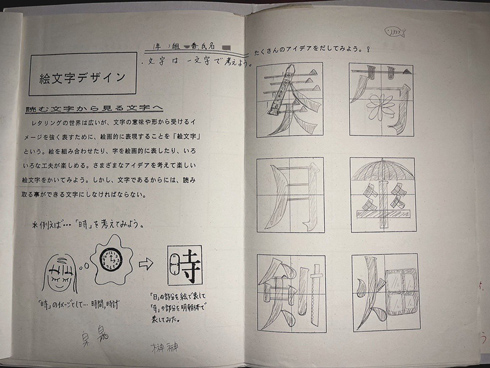 1年 1組 番氏名
・文字は一文字で考えよう。
絵文字デザイン
読む文字から見る文字へ
レタリングの世界は広いが、文字の意味や形から受けるイ
メージを強く表すために、絵画的に表現することを「絵文字」
という。絵を組み合わせたり、字を絵画的に表したり、いろ
いろな工夫が楽しめる。さまざまなアイデアを考えて楽しい
絵文字をかいてみよう。しかし、文字であるからには、読み
取る事ができる文字にしなければならない。
*例えば…「時」を考えてみよう。
時
「時」のイメージとして… 時間、時計
「日」の部分を絵で表して
「寺」の部分を明朝体で
表してみた。
たくさんのアイデアをだしてみよう。?
奏
竹
月
傘
剣
畑